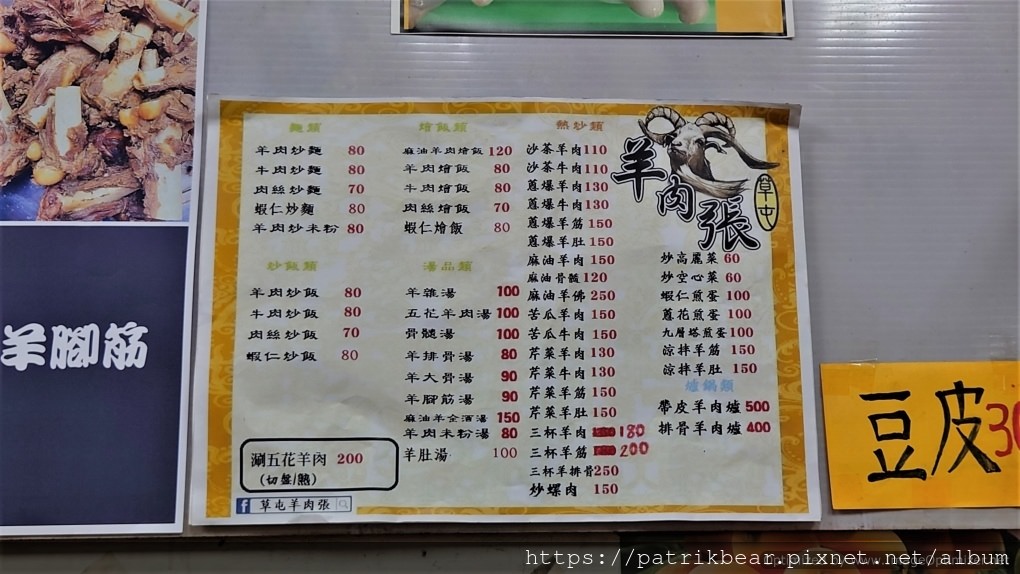 羊腳筋
麵類
羊肉炒麵 80
牛肉炒麵 80
肉絲炒麵 70
蝦仁炒麵 80
羊肉炒米粉 80
炒飯類
羊肉炒飯 80
牛肉炒飯 80
肉絲炒飯 70
蝦仁炒飯 80
涮五花羊肉 200
(切盤/熱)
草屯羊肉張
燴飯類
麻油羊肉燴飯 120
羊肉燴飯 80
牛肉燴飯 80
肉絲燴飯 70
蝦仁燴飯 80
湯品類
羊雜湯 100
五花羊肉湯 100
骨髓湯 100
羊排骨湯 80
羊大骨湯 90
羊腳筋湯 90
麻油羊全酒湯 150
羊肉米粉湯 80
羊肚湯 100
熱炒類
沙茶羊肉 110
沙茶牛肉 110
蔥爆羊肉 130
蔥爆牛肉 130
蔥爆羊筋 150
蔥爆羊肚 150
麻油羊肉 150
麻油骨髓 120
麻油羊佛 250
苦瓜羊肉 150
苦瓜牛肉 150
芹菜羊肉 130
芹菜牛肉 130
芹菜羊筋 150
芹菜羊肚 150
三杯羊肉 180
三杯羊筋 200
三杯羊排骨 250
炒螺肉 150
羊肉張
草屯
炒高麗菜 60
炒空心菜 60
蝦仁煎蛋 100
蔥花煎蛋 100
九層塔煎蛋 100
涼拌羊筋 150
涼拌羊肚 150
爐鍋類
帶皮羊肉爐 500
排骨羊肉爐 400
豆皮30
https://patrikbear.pixnet.net/album